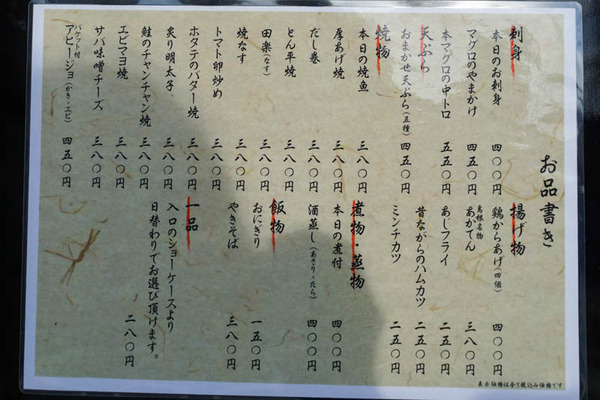 お品書き
刺身
本日のお刺身 四〇〇円
マグロのやまかけ 三八〇円
本マグロの中トロ 五五〇円
天ぷら
おまかせ天ぷら(五種) 四五〇円
焼物
本日の焼魚 三八〇円
厚あげ焼 三八〇円
だし巻 三八〇円
とん平焼 三八〇円
田楽(なす) 三八〇円
焼なす 三八〇円
トマト卵炒め 三八〇円
ホタテのバター焼 三八〇円
炙り明太子 三八〇円
鮭のチャンチャン焼 三八〇円
エビマヨ焼 三八〇円
サバ味噌チーズ 三八〇円
バケット付
アヒージョ(かき・エビ) 四五〇円
揚げ物
鶏からあげ(四個) 四〇〇円
島根名物
あかてん 三八〇円
あじフライ 二五〇円
昔ながらのハムカツ 二五〇円
ミンチカツ 二五〇円
煮物・蒸物
本日の煮付 四〇〇円
酒蒸し(あさり・たら) 四〇〇円
飯物
おにぎり 一五〇円
やきそば 三八〇円
一品
入口のショーケースより
日替わりでお選び頂けます。
二八〇円
表示価格は全て税込み価格です